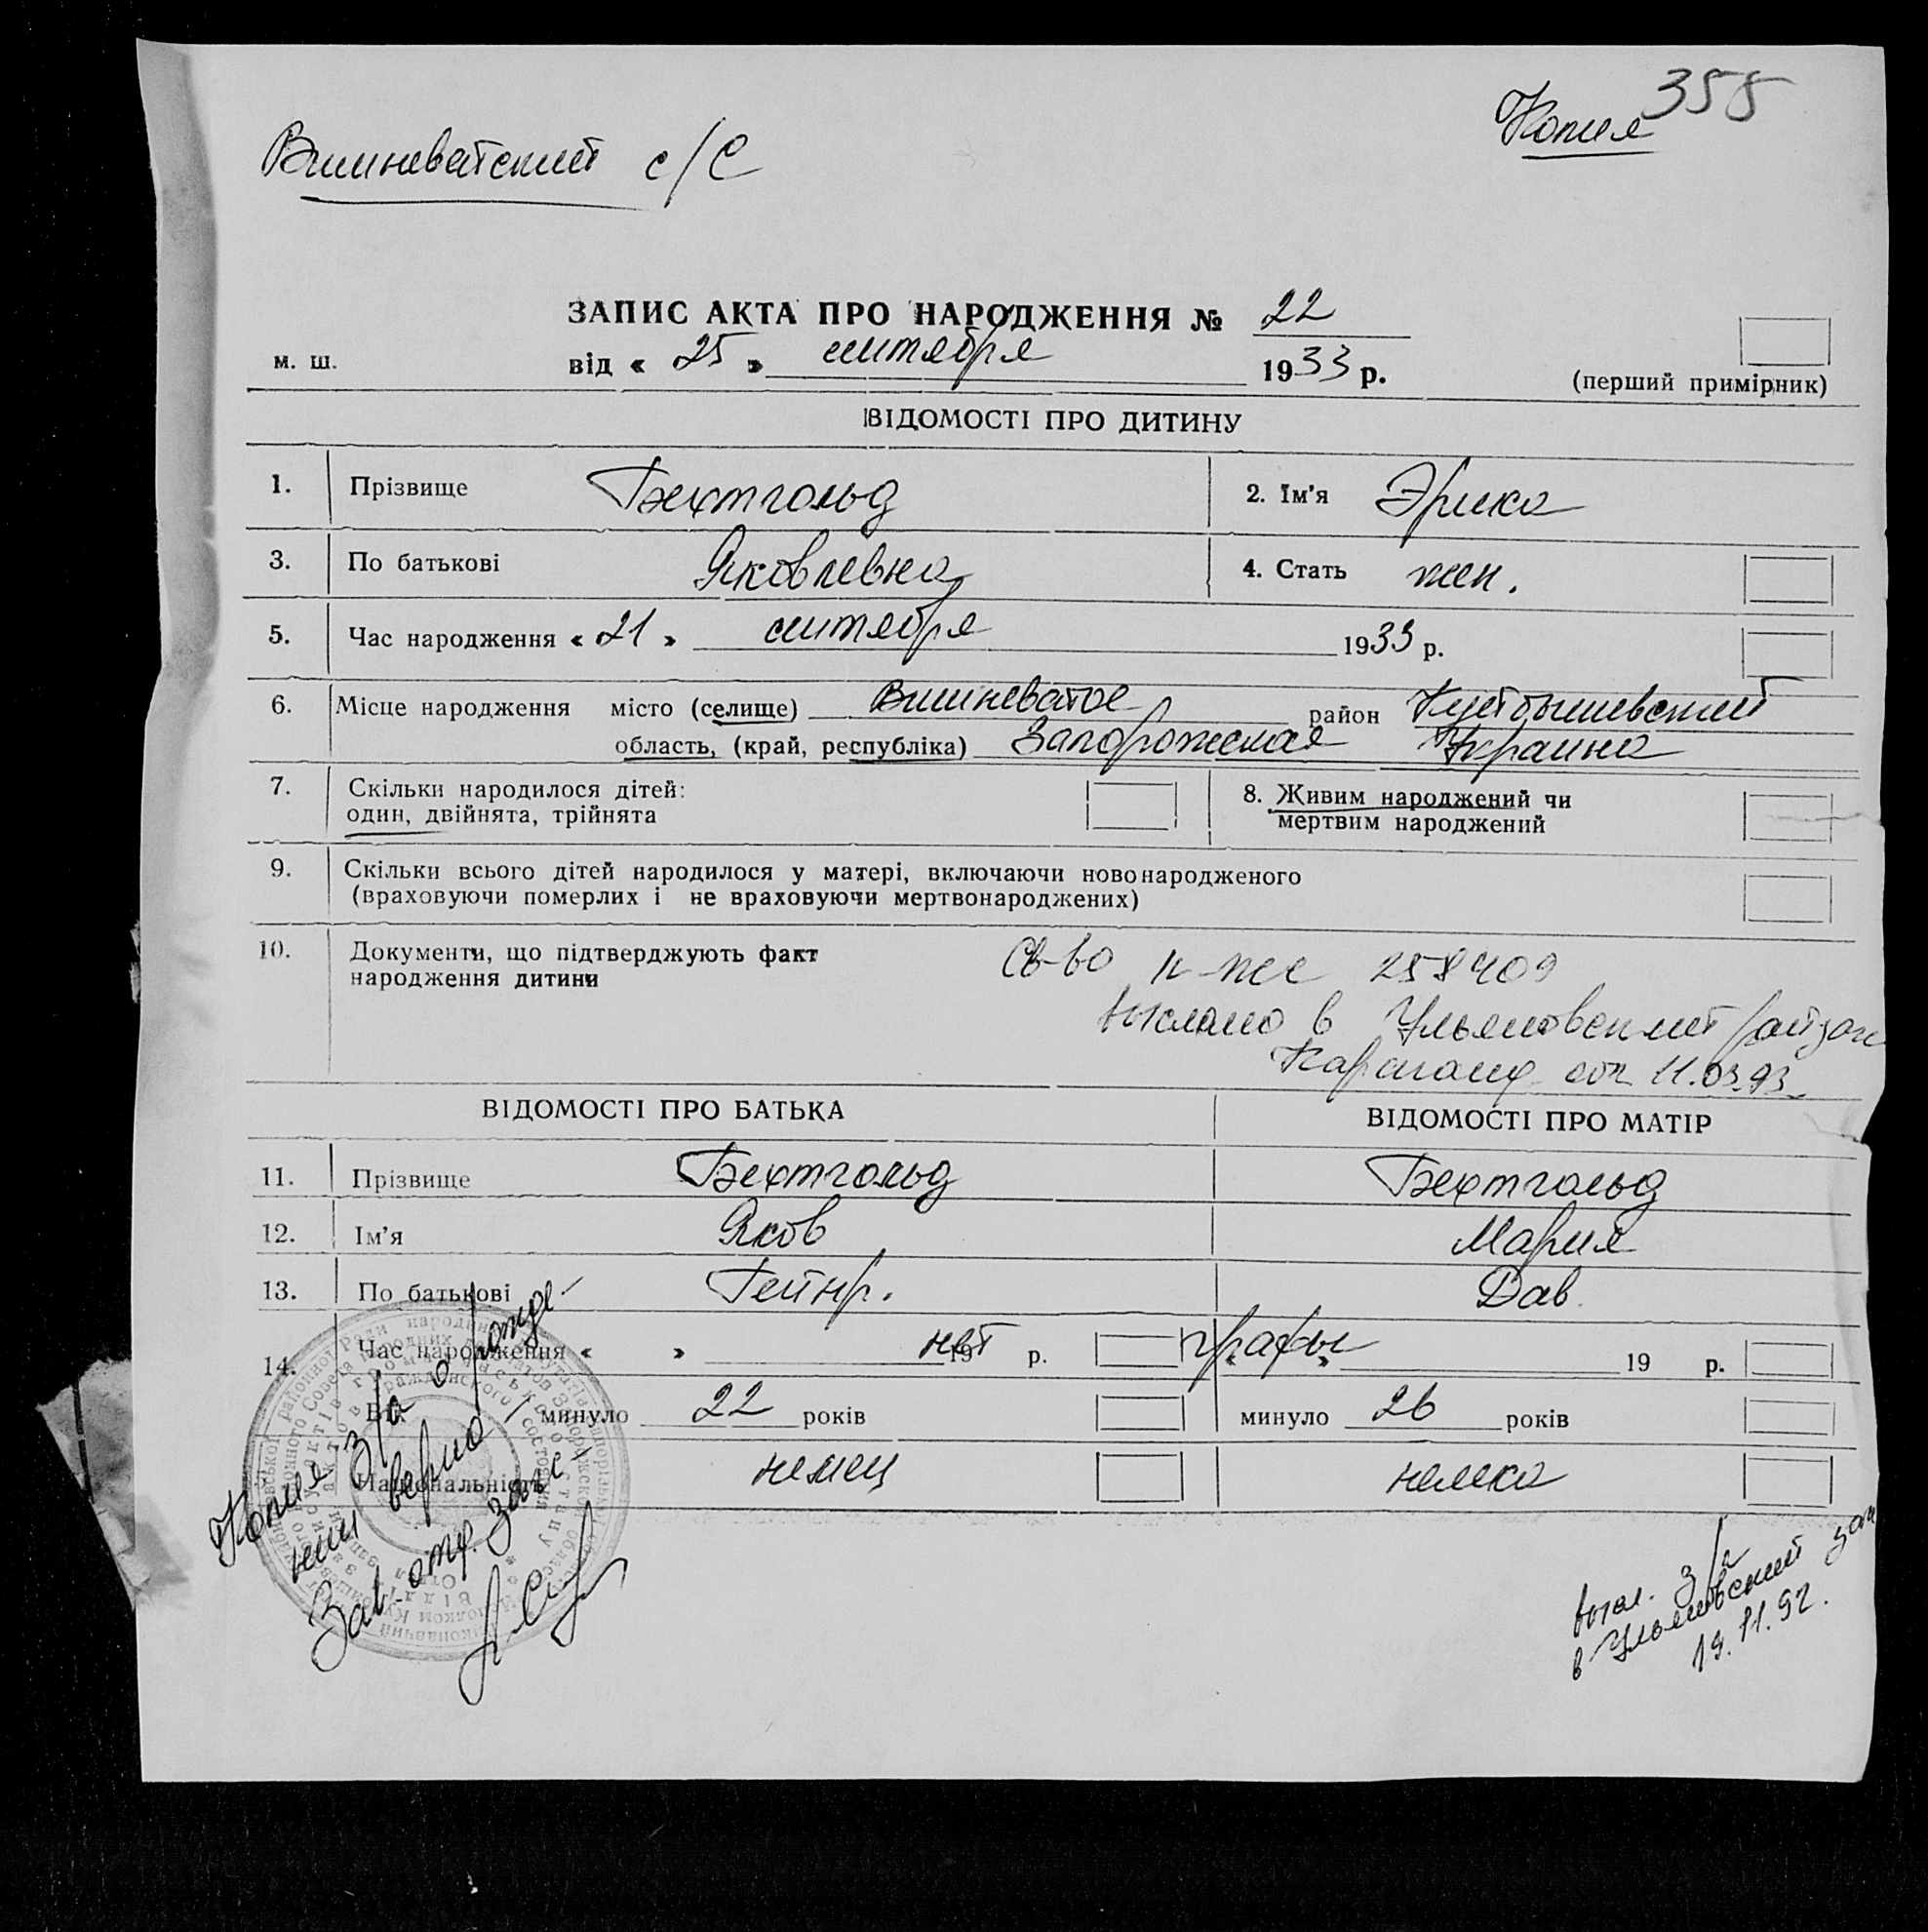 358
Копия
Вишневатский с/С
ЗАПИС АКТА ПРО НАРОДЖЕННЯ № 22
м. ш. від « 25 » сентября 1933 р. (перший примірник)
ВІДОМОСТІ ПРО ДИТИНУ
1. Прізвище Бехтгольд 2. Ім'я Эрика
3. По батькові Яковлевна 4. Стать жен.
5. Час народження « 21 » сентября 1933 р.
6. Місце народження місто (селище) Вишневатое район Куйбышевский
область, (край, республіка) Запорожская Украина
7. Скільки народилося дітей: 8. Живим народжений чи
один, двійнята, трійнята мертвим народжений
9. Скільки всього дітей народилося у матері, включаючи новонародженого
(враховуючи померлих і не враховуючи мертвонароджених)
10. Документи, що підтверджують факт Св-во 258409
народження дитини выслано в Ульяновский райзагс
Караганд. обл 11.03.93
ВІДОМОСТІ ПРО БАТЬКА ВІДОМОСТІ ПРО МАТІР
11. Прізвище Бехтгольд Бехтгольд
12. Ім'я Яков Мария
13. По батькові Гейнр. Дав.
14. Час народження « » нет 19 р. графы « » 19 р.
Вік минуло 22 років минуло 26 років
Національність немец немка
Копия З/а о рожде-
нии верна
Зав. отд. загс
выл. З/а
в Ульяновский загс
19.11.92.